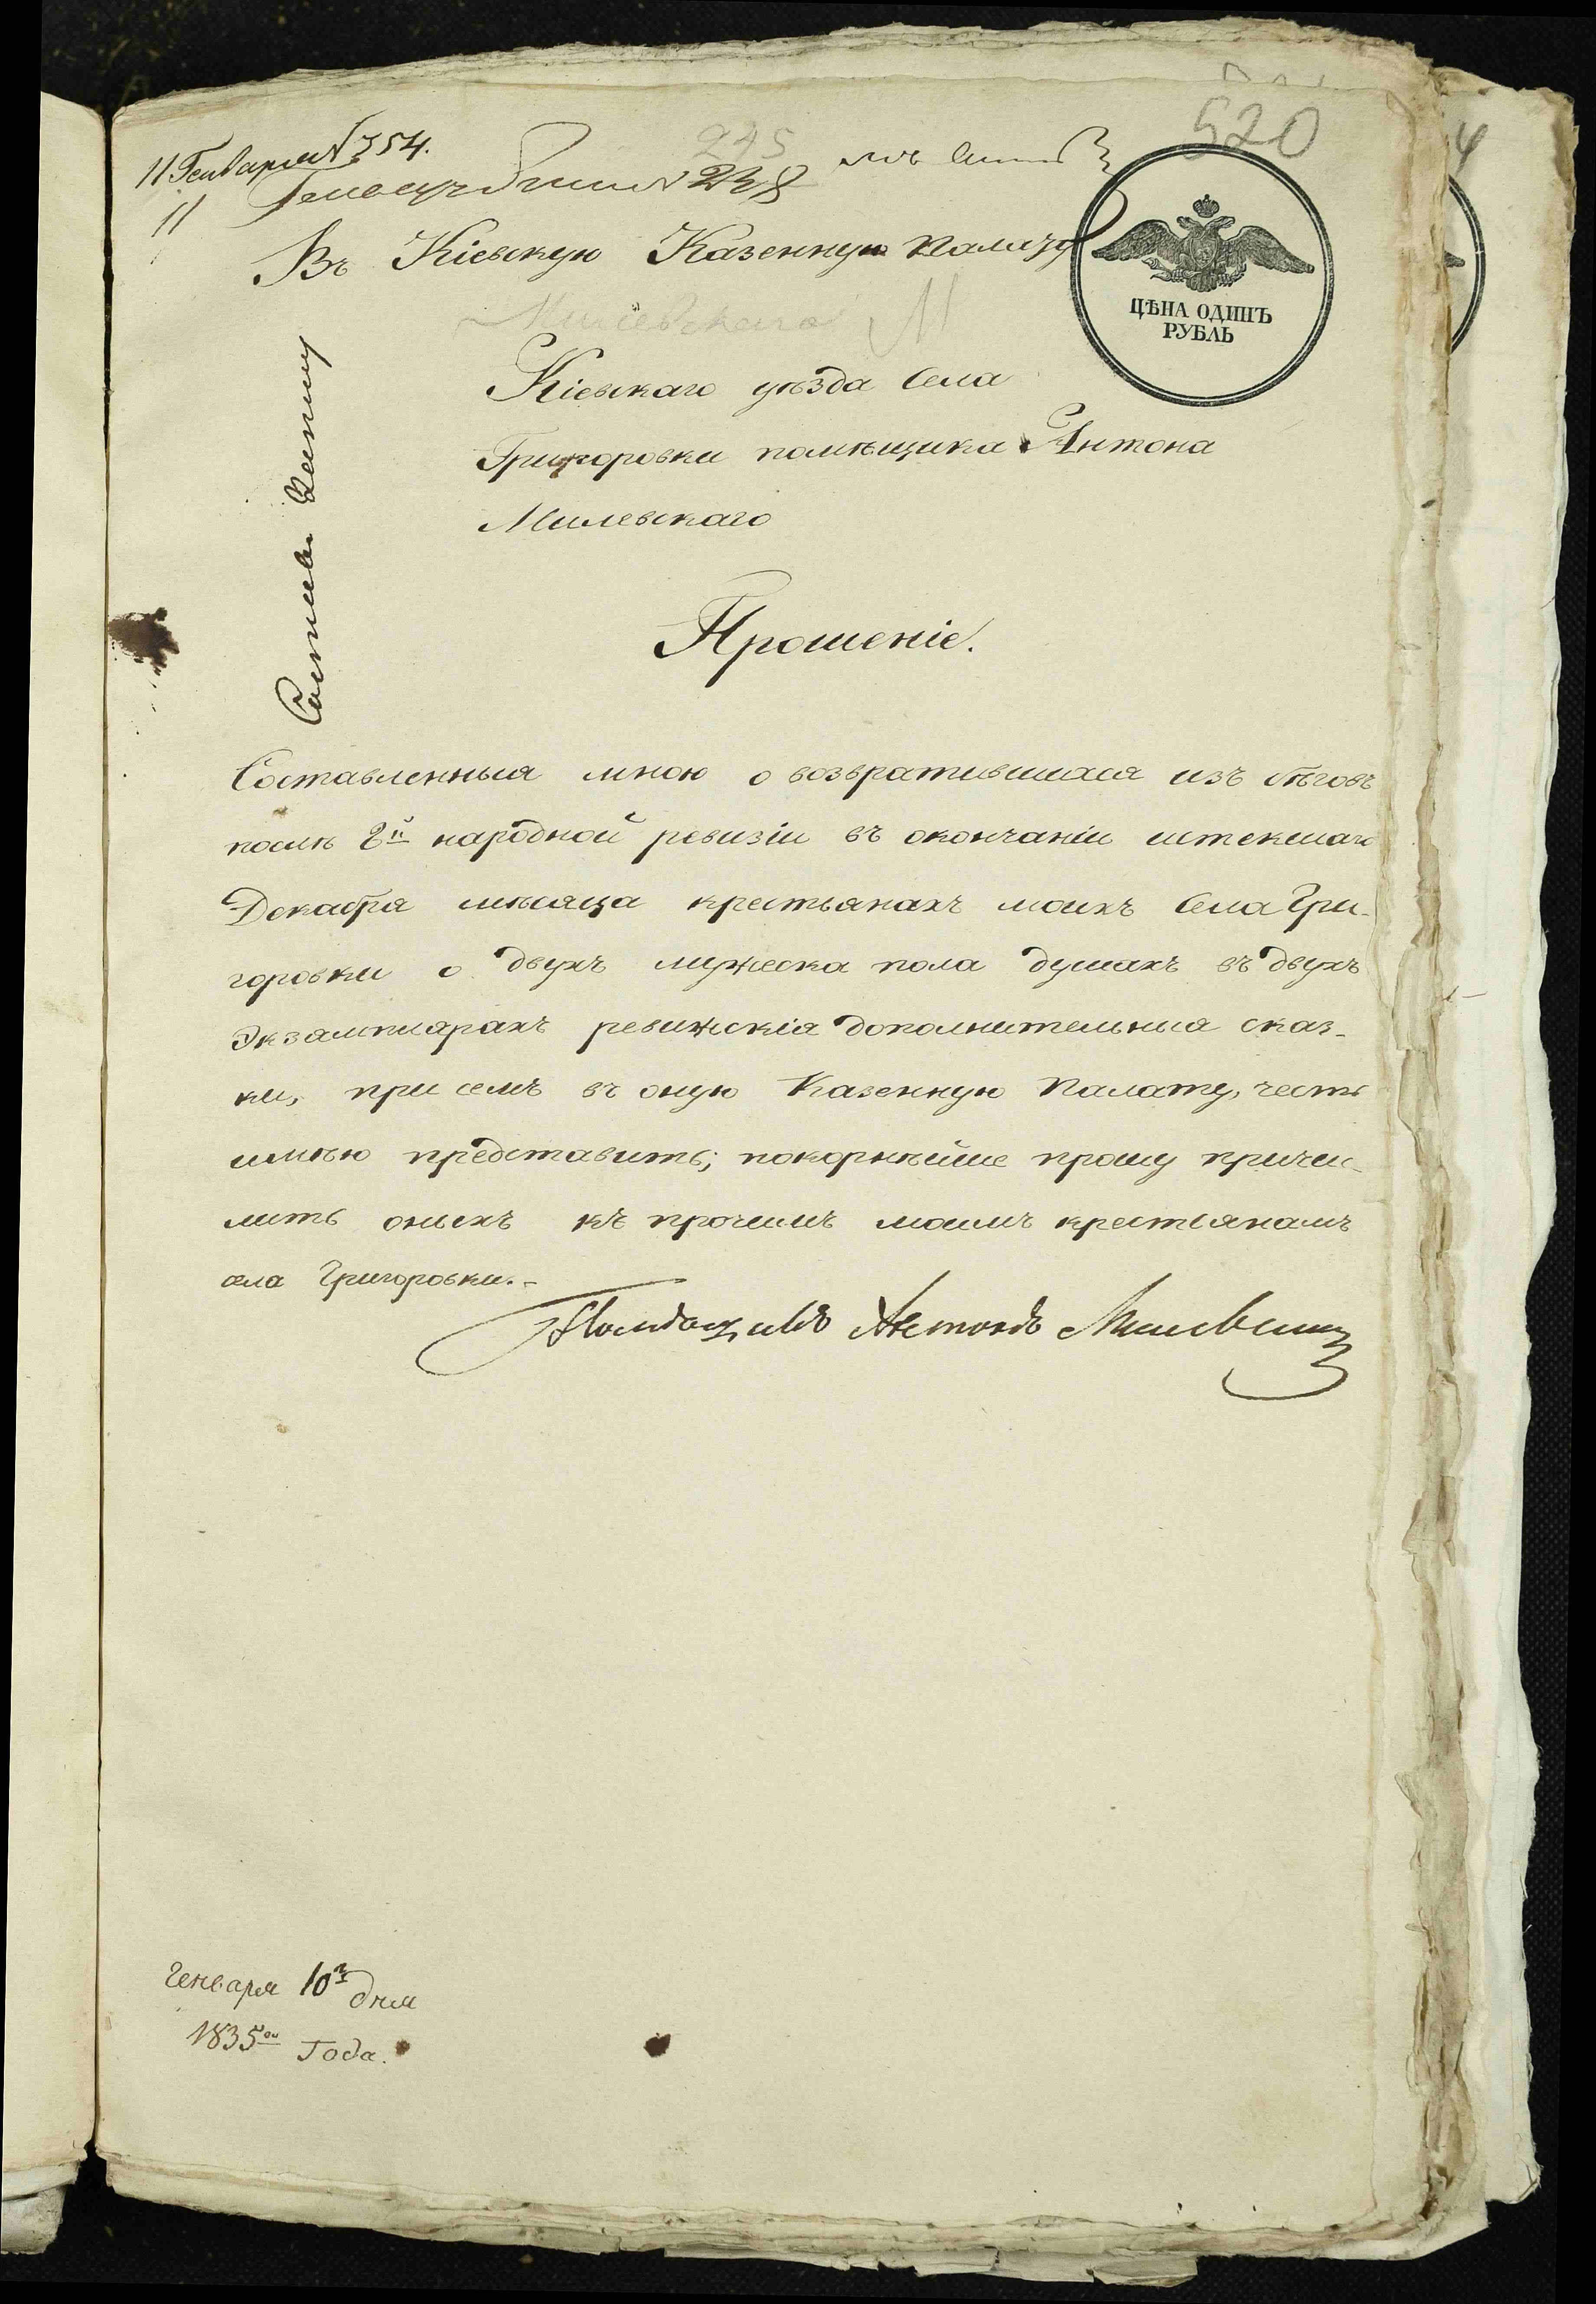 520
11 Генваря № 354.
245
238
11
Въ Кіевскую Казенную Палату
ЦѢНА ОДИНЪ
РУБЛЬ
Милевскаго
Кіевскаго уѣзда Села
Григоровки помѣщика Антона
Милевскаго
Прошеніе.
Составленныя мною о возвратившихся изъ бѣговъ
послѣ 8й народной ревизіи въ окончаніи истекшаго
Декабря мѣсяца крестьянахъ моихъ Села Гри-
горовки о двухъ мужеска пола душахъ въ двухъ
экземплярахъ ревижскія дополнительныя сказ-
ки, при семъ въ оную Казенную Палату, честь
имѣю представить; покорнѣйше прошу причи-
лить оныхъ къ прочимъ моимъ крестьянамъ
села Григоровки.-
Помѣщикъ Антонъ Милевский
Генваря 10го дня
1835го Года.